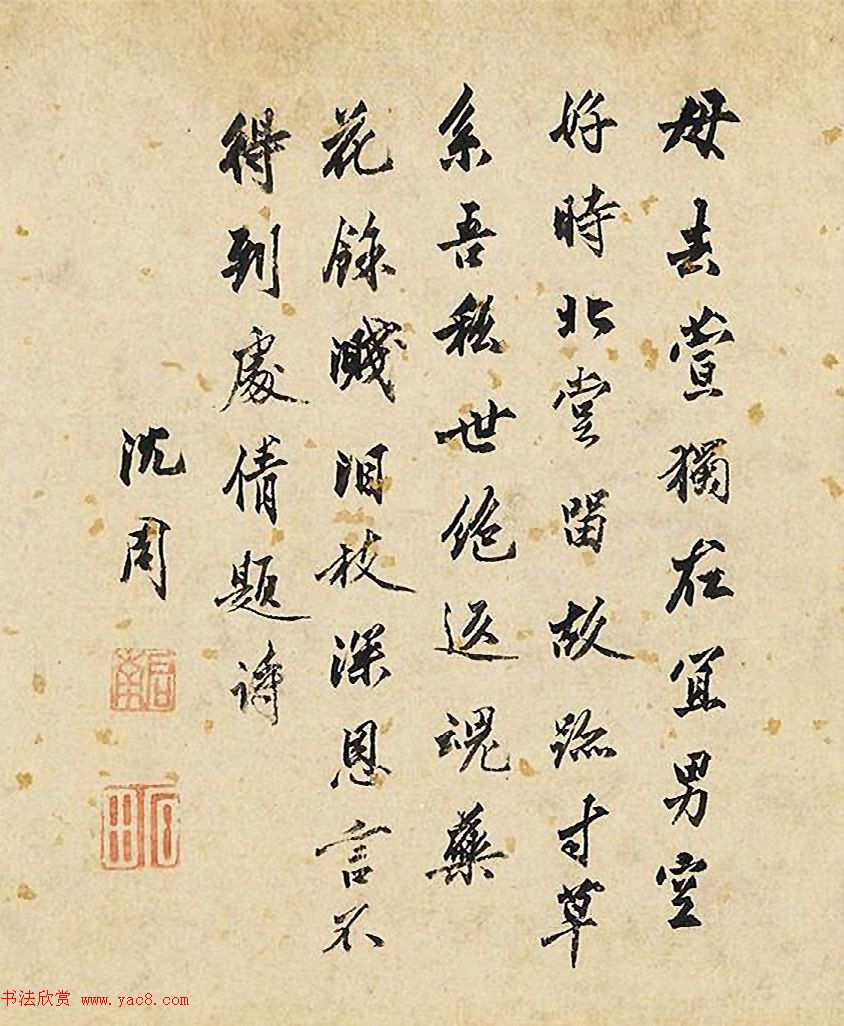 母去萱獨在宜男空
好時北堂留故跡寸草
系吾私世絶返魂藥
花餘濺泪枝深恩言不
得到處倩題詩
沈周
啟南
石田
书法欣赏 www.yac8.com